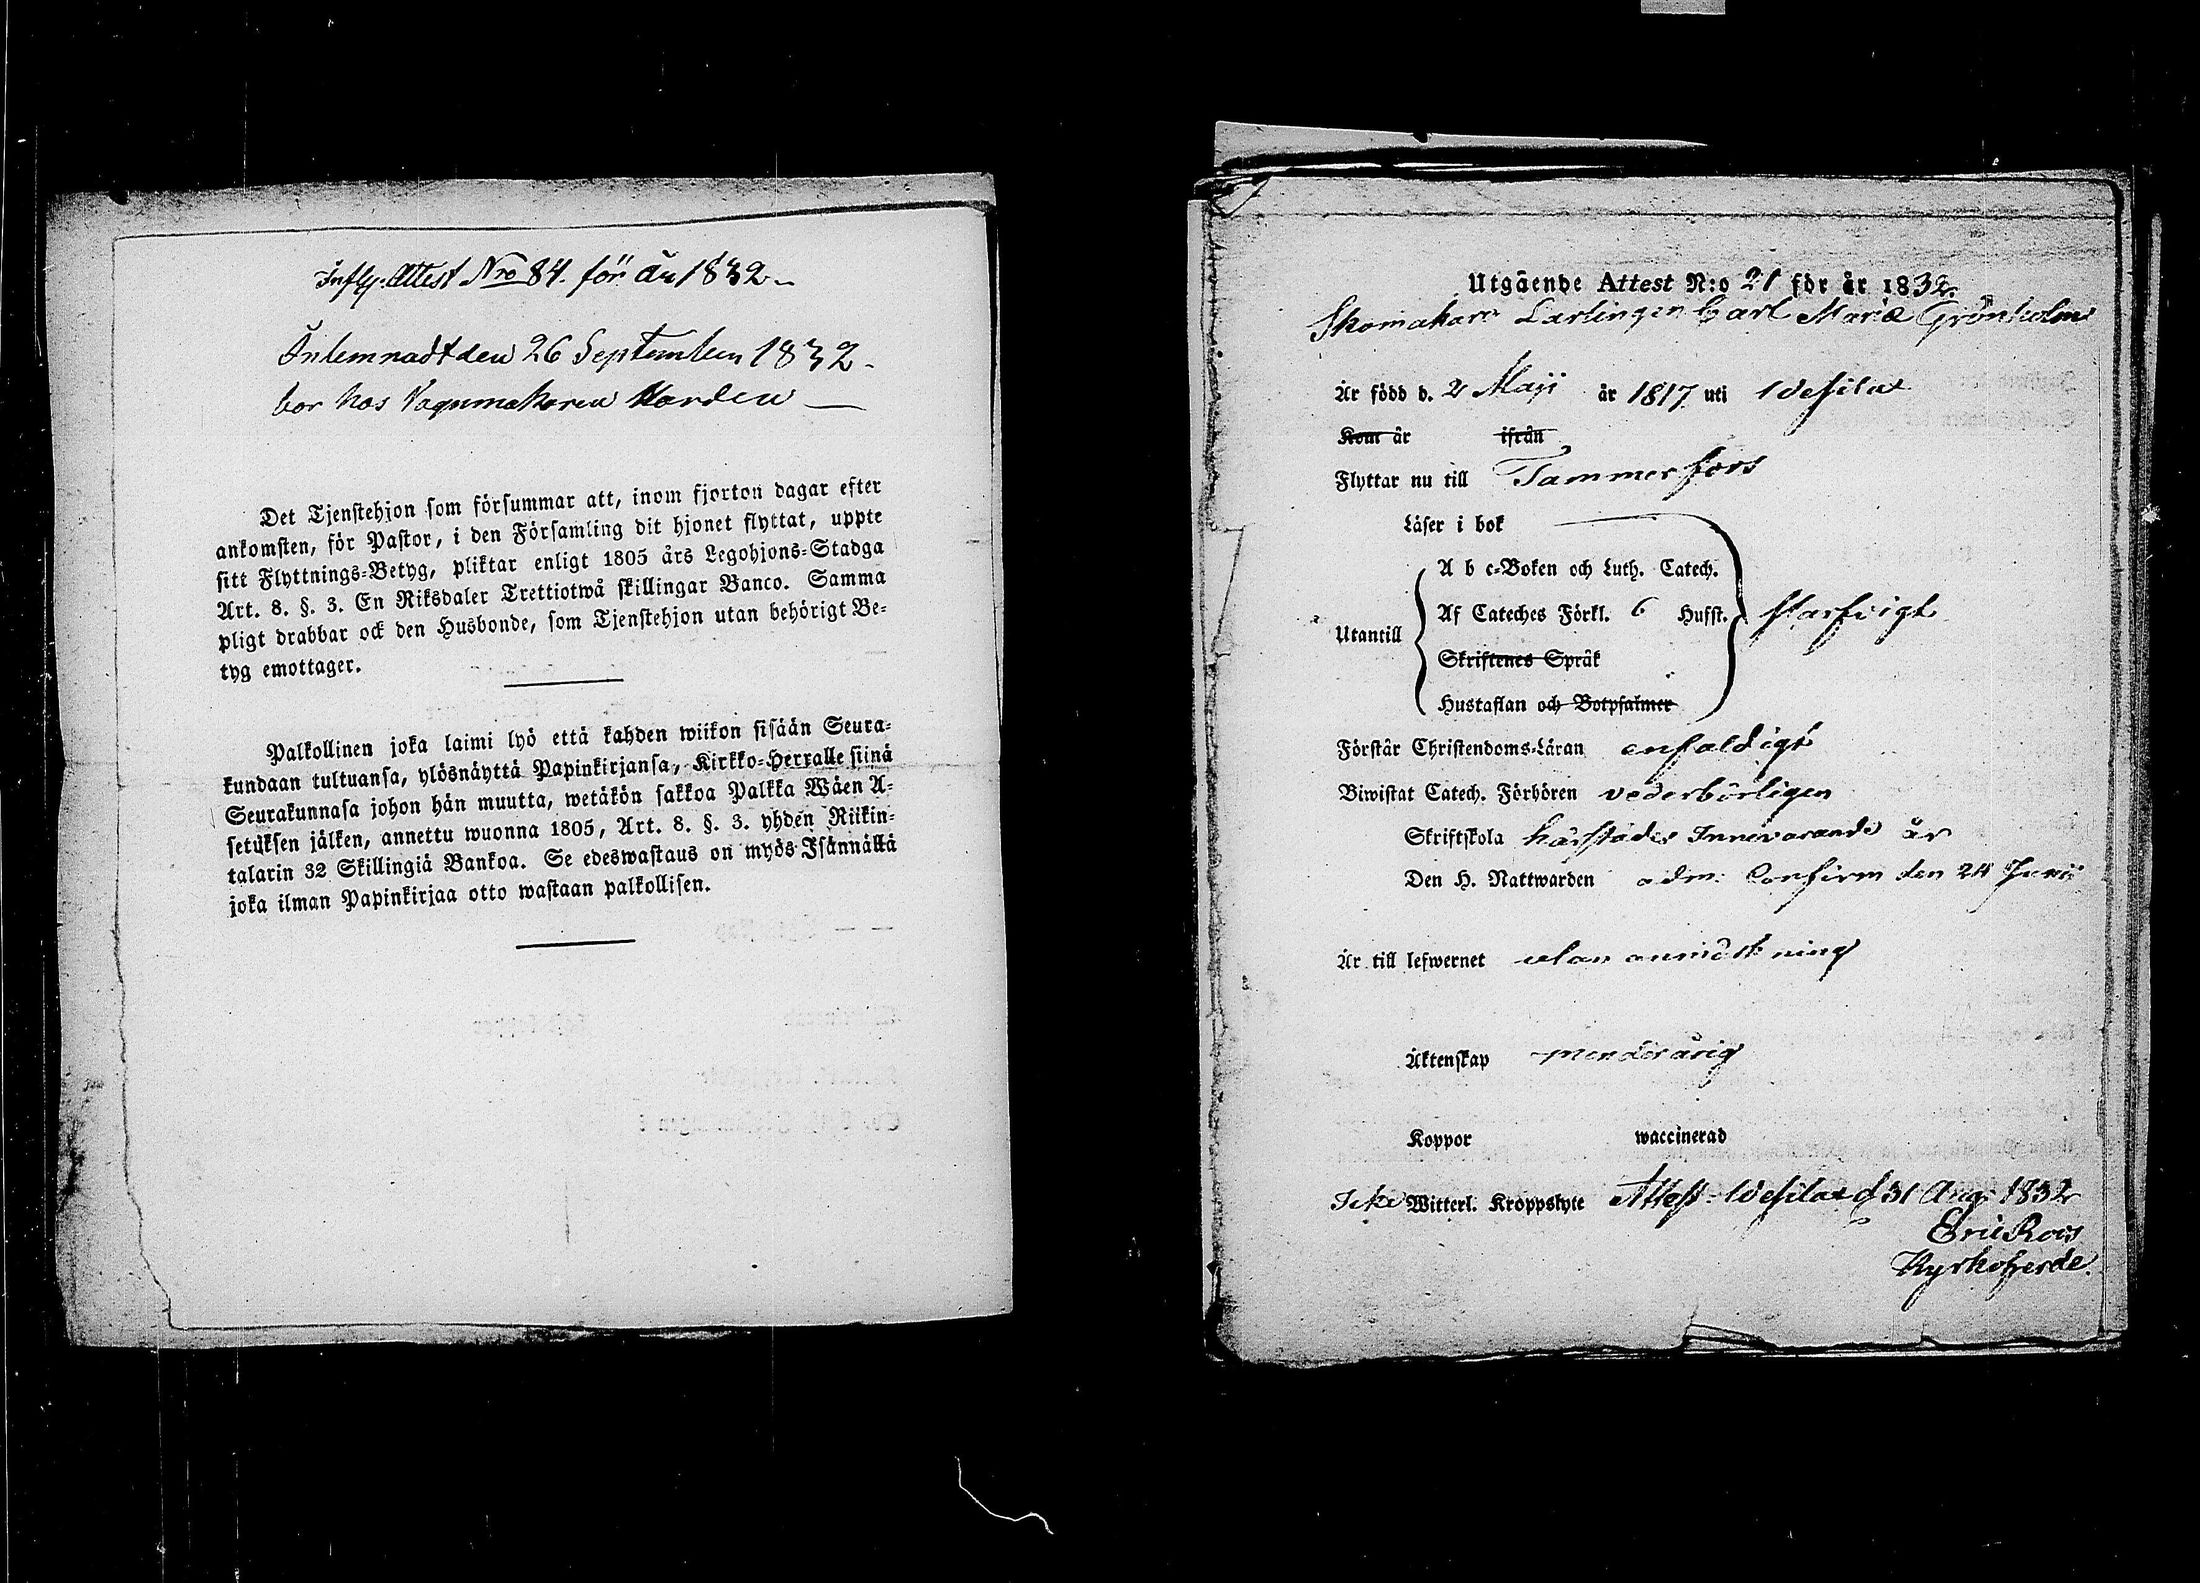 Infly. Attest Nro 84. för år 1832.
Inlemnadt den 26 September 1832.
bor hos Vagnmakaren Norden —
Det Tjenstehjon som försummar att, inom fjorton dagar efter
ankomsten, för Pastor, i den Församling dit hjonet flyttat, uppte
sitt Flyttnings-Betyg, pliktar enligt 1805 års Legohjons-Stadga
Art. 8. §. 3. En Riksdaler Trettiotwå skillingar Banco. Samma
pligt drabbar ock den Husbonde, som Tjenstehjon utan behörigt Be-
tyg emottager.
Palkollinen joka laimi lyö että kahden wiikon sisään Seura-
kundaan tultuansa, ylösnäyttä Papinkirjansa, Kirkko-Herralle siinä
Seurakunnasa johon hän muutta, wetäkön sakkoa Palkka Wäen A-
setuksen jälken, annettu wuonna 1805, Art. 8. §. 3. yhden Riikin-
talarin 32 Skillingiä Bankoa. Se edeswastaus on myös Isännällä
joka ilman Papinkirjaa otto wastaan palkollisen.
Utgående Attest N:o 21 för år 1832.
Skomakare Lärlingen Carl Mariæ Grönholm
Är född d. 2 Maji år 1817 uti Wesilax
Kom år ifrån
Flyttar nu till Tammerfors
Läser i bok
A b c-Boken och Luth. Catech.
Utantill Af Cateches Förkl. 6 Hufst. Försvigt
Skriftenes Språk
Hustaflan och Botpsalmer
Förstår Christendoms-Läran enfaldigt
Biwistat Catech. Förhören vederbörligen
Skriftskola härstädes Innevarande år
Den H. Nattwarden adm: Confirm den 24 Junii
Är till lefwernet utan anmärkning
Äktenskap minderårig
Koppor waccinerad
Icke Witterl. Kroppslyte Attest. Wesilax d 31 Aug. 1832
Eric Roos
Kyrkoherde.